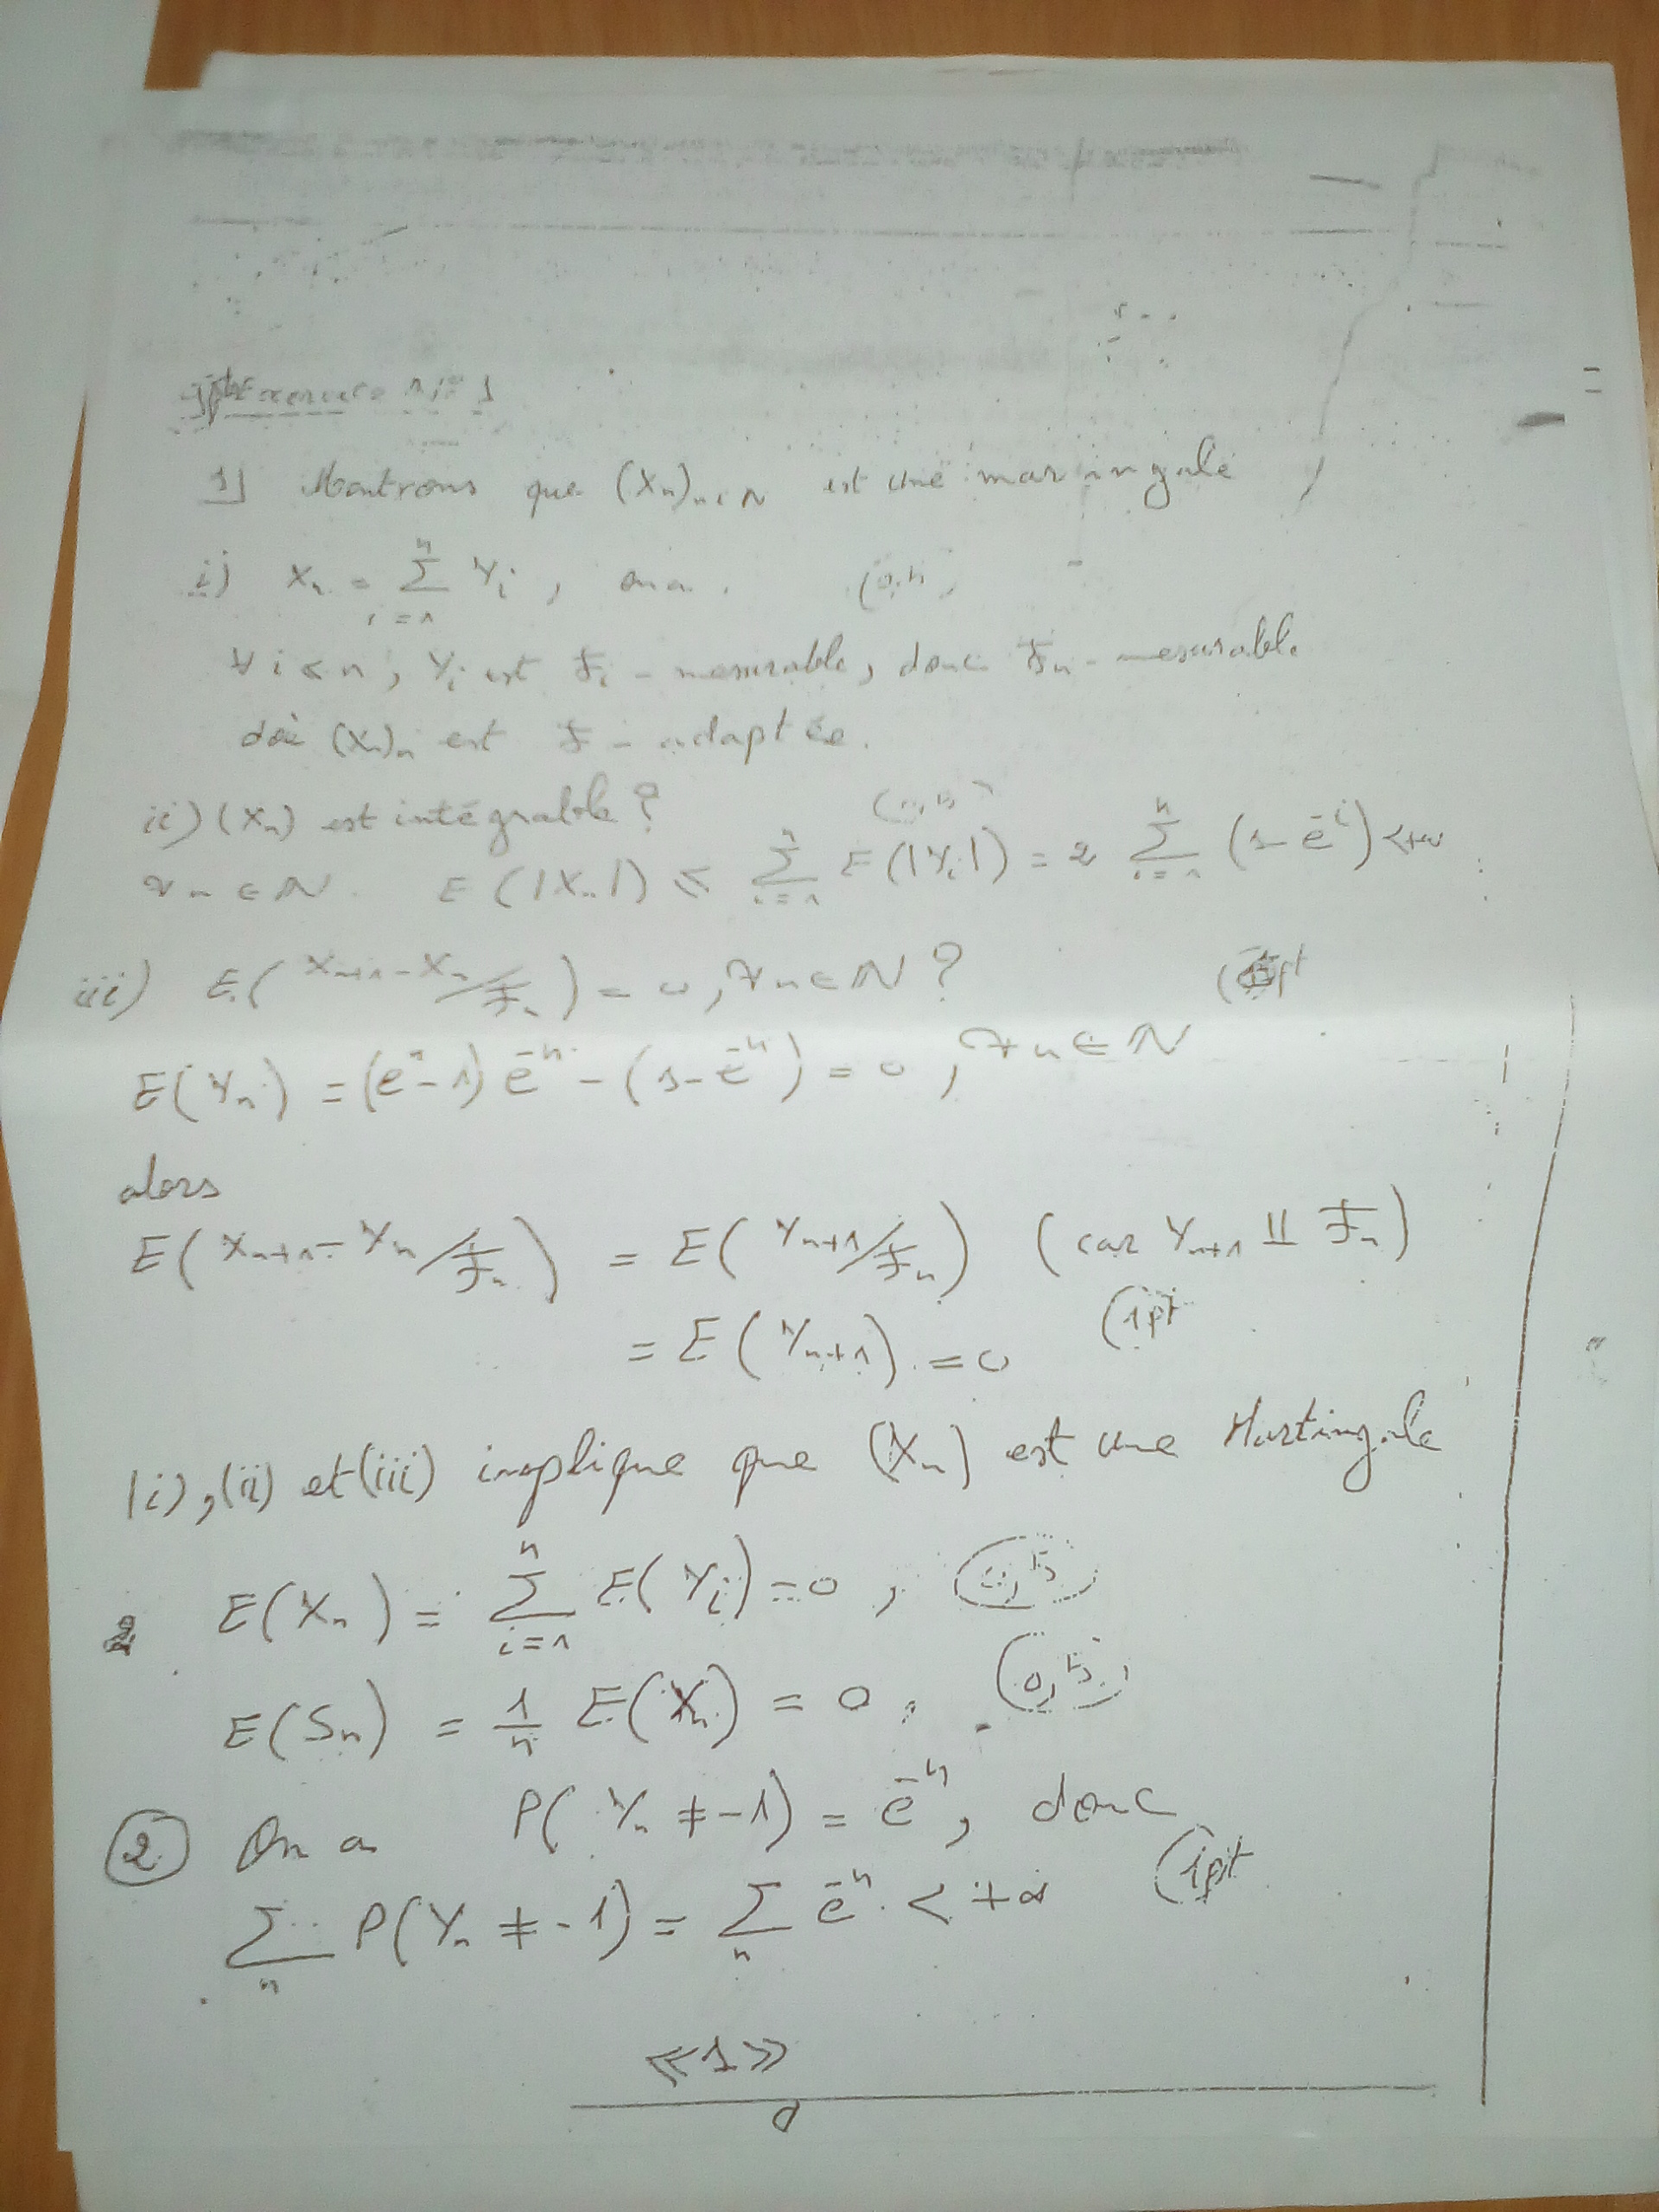 Exercice n°: 1
1) Montrons que (Xn)n∈N est une martingale
i) Xn = Σ_{i=1}^{n} Yi, on a. (0,5)
∀ i ≤ n, Yi est Fi - mesurable, donc Fn - mesurable
doù (Xn)n est F - adaptée.
ii) (Xn) est intégrable ? (0,5)
∀ n ∈ N. E(|Xn|) ≤ Σ_{i=1}^{n} E(|Yi|) = 2 Σ_{i=1}^{n} (1 - e^{-i}) < +∞
iii) E(Xn+1 - Xn / Fn) = 0, ∀ n ∈ N ? pt
E(Yn) = (e^n - 1) e^{-n} - (1 - e^{-n}) = 0, ∀ n ∈ N
alors
E(Xn+1 - Xn / Fn) = E(Yn+1 / Fn) (car Yn+1 ⫫ Fn)
= E(Yn+1) = 0 (1pt
(i), (ii) et (iii) implique que (Xn) est une Martingale
E(Xn) = Σ_{i=1}^{n} E(Yi) = 0, (0,5)
E(Sn) = 1/n E(Xn) = 0, (0,5)
② On a P(Yn ≠ -1) = e^{-n}, donc
Σ_n P(Yn ≠ -1) = Σ_n e^{-n} < +∞ (1pt
≪1≫